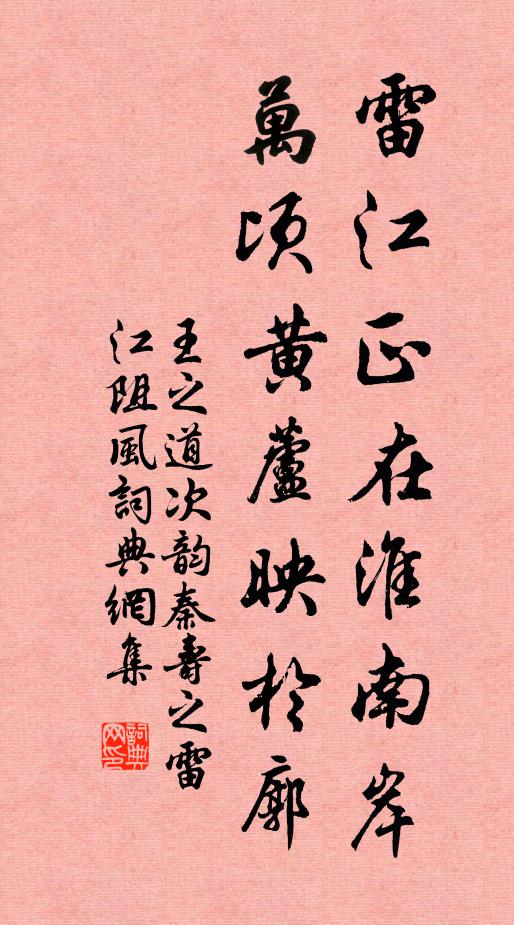 雷江正在淮南岸
萬頃黃蘆映於廓
王之道次韵秦壽之雷
江阻風詞典網集
詞典網印